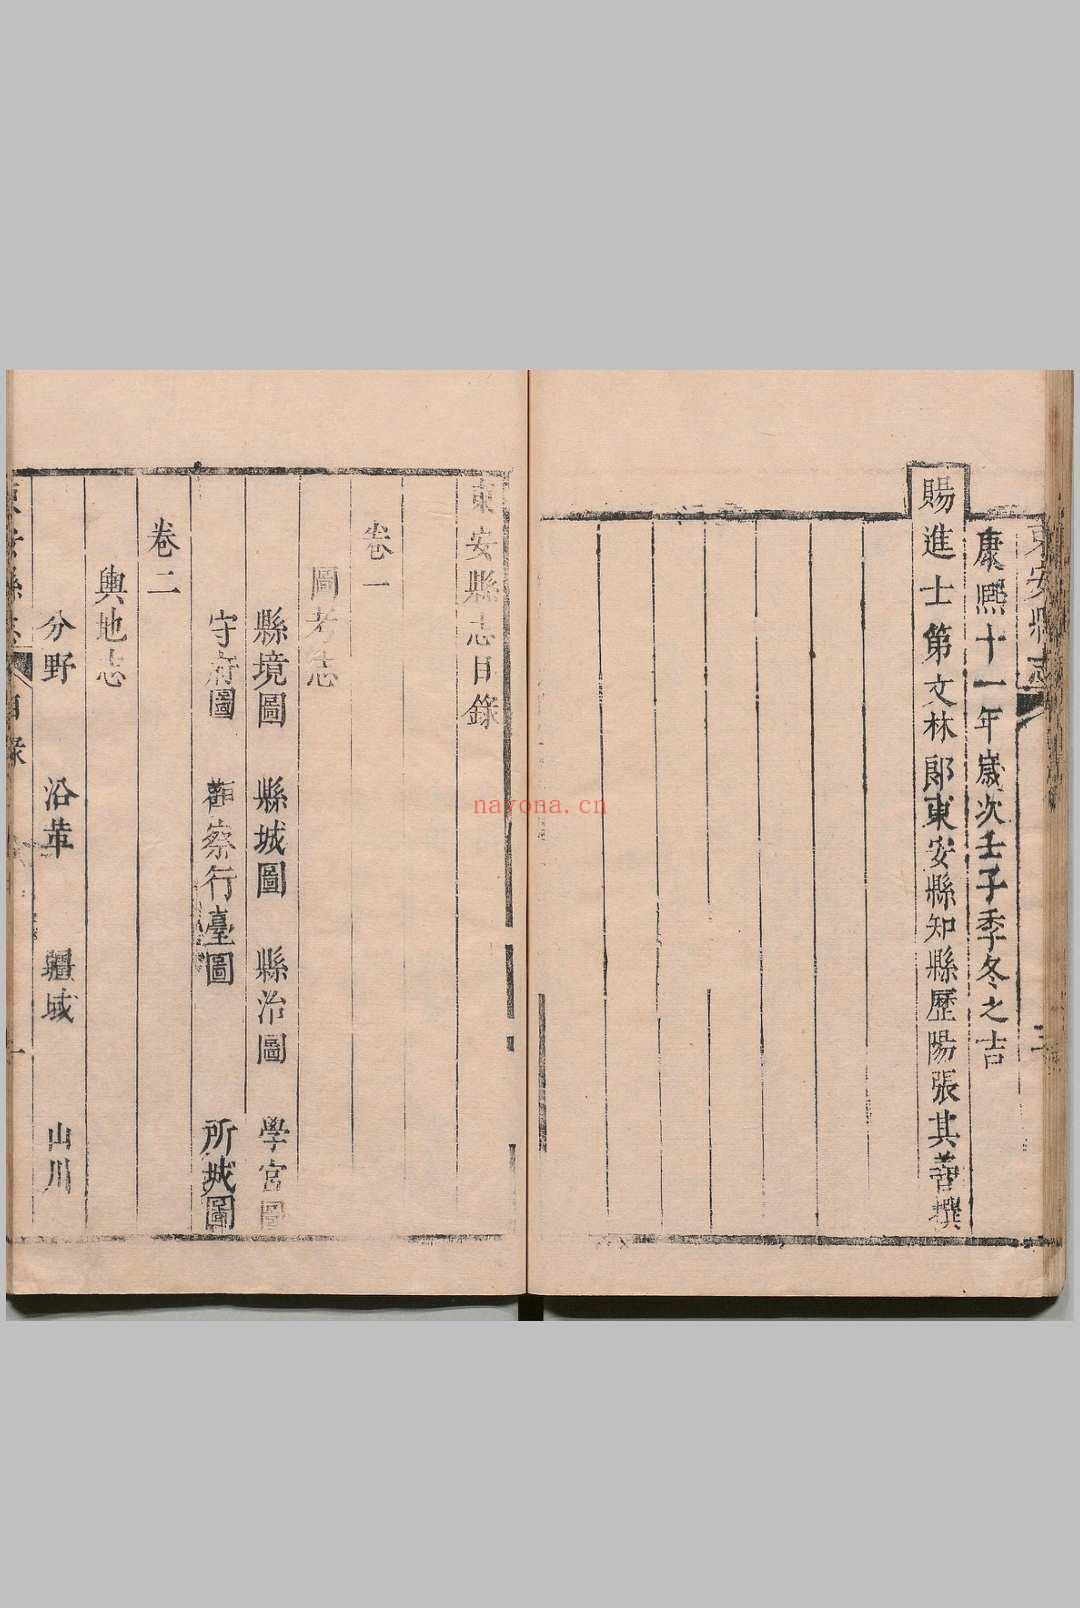 東安縣志
康熙十一年歲次壬子季冬之吉
賜進士第文林郎東安縣知縣歷陽張其善撰
東安縣志目錄
卷一
圖考志
縣境圖 縣城圖 縣治圖 學宮圖
守府圖 觀察行臺圖 所城圖
卷二
輿地志
分野 沿革 疆域 山川
東安縣志 目錄 一
nayona.cn